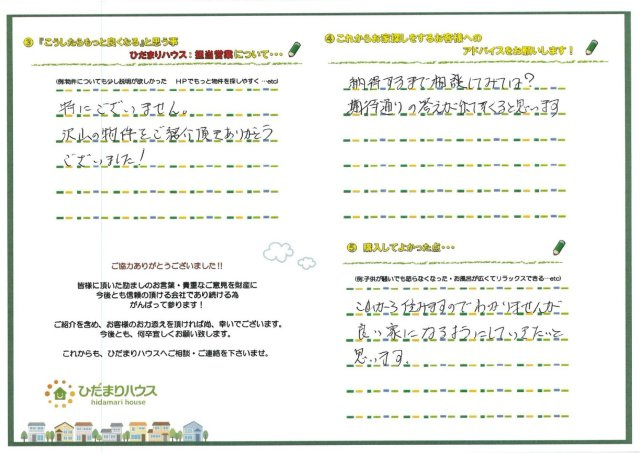 ③『こうしたらもっと良くなる』と思う事
ひだまりハウス：担当営業について・・・
(例:物件についても少し説明が欲しかった　HPでもっと物件を探しやすく …etc)
特にございません。
沢山の物件をご紹介頂きありがとう
ございました!
ご協力ありがとうございました!!
皆様に頂いた励ましのお言葉・貴重なご意見を財産に
今後とも信頼の頂ける会社であり続ける為
がんばって参ります！
ご紹介を含め、お客様のお力添えを頂ければ尚、幸いでございます。
今後とも、何卒宜しくお願い致します。
これからも、ひだまりハウスへご相談・ご連絡を下さいませ。
ひだまりハウス
hidamari house
④これからお家探しをするお客様への
アドバイスをお願いします！
納得するまで相談してみては?
期待通りの答えが出てくると思います
⑤ 購入してよかった点・・・
(例:子供が騒いでも怒らなくなった・お風呂が広くてリラックスできる…etc)
これから住みますのでわかりませんが
良い家になるようにしていきたいと
思います。